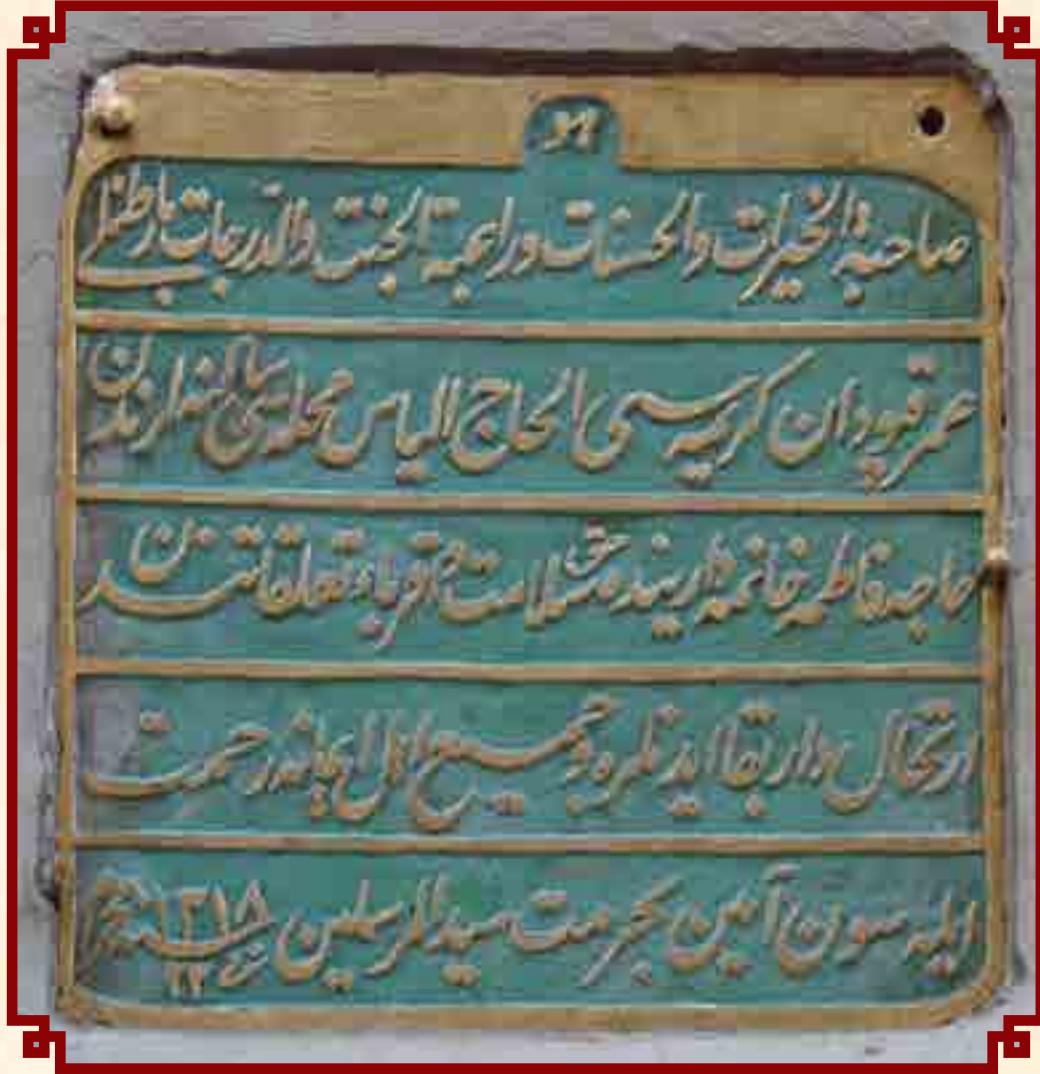 هو
صاحبة الخيرات والحسنات وراغبة الجنت والدرجات
عمر قپودان كريمه سى الحاج الياس محله سى
حاجه فاطمه خانمه اقربا وتعلقاتندن
ارتحال دار بقا ايدنلره وجميع اهل ايمانه رحمت
ايليه سون آمين بحرمت سيد المرسلين سنه ١٣١٨